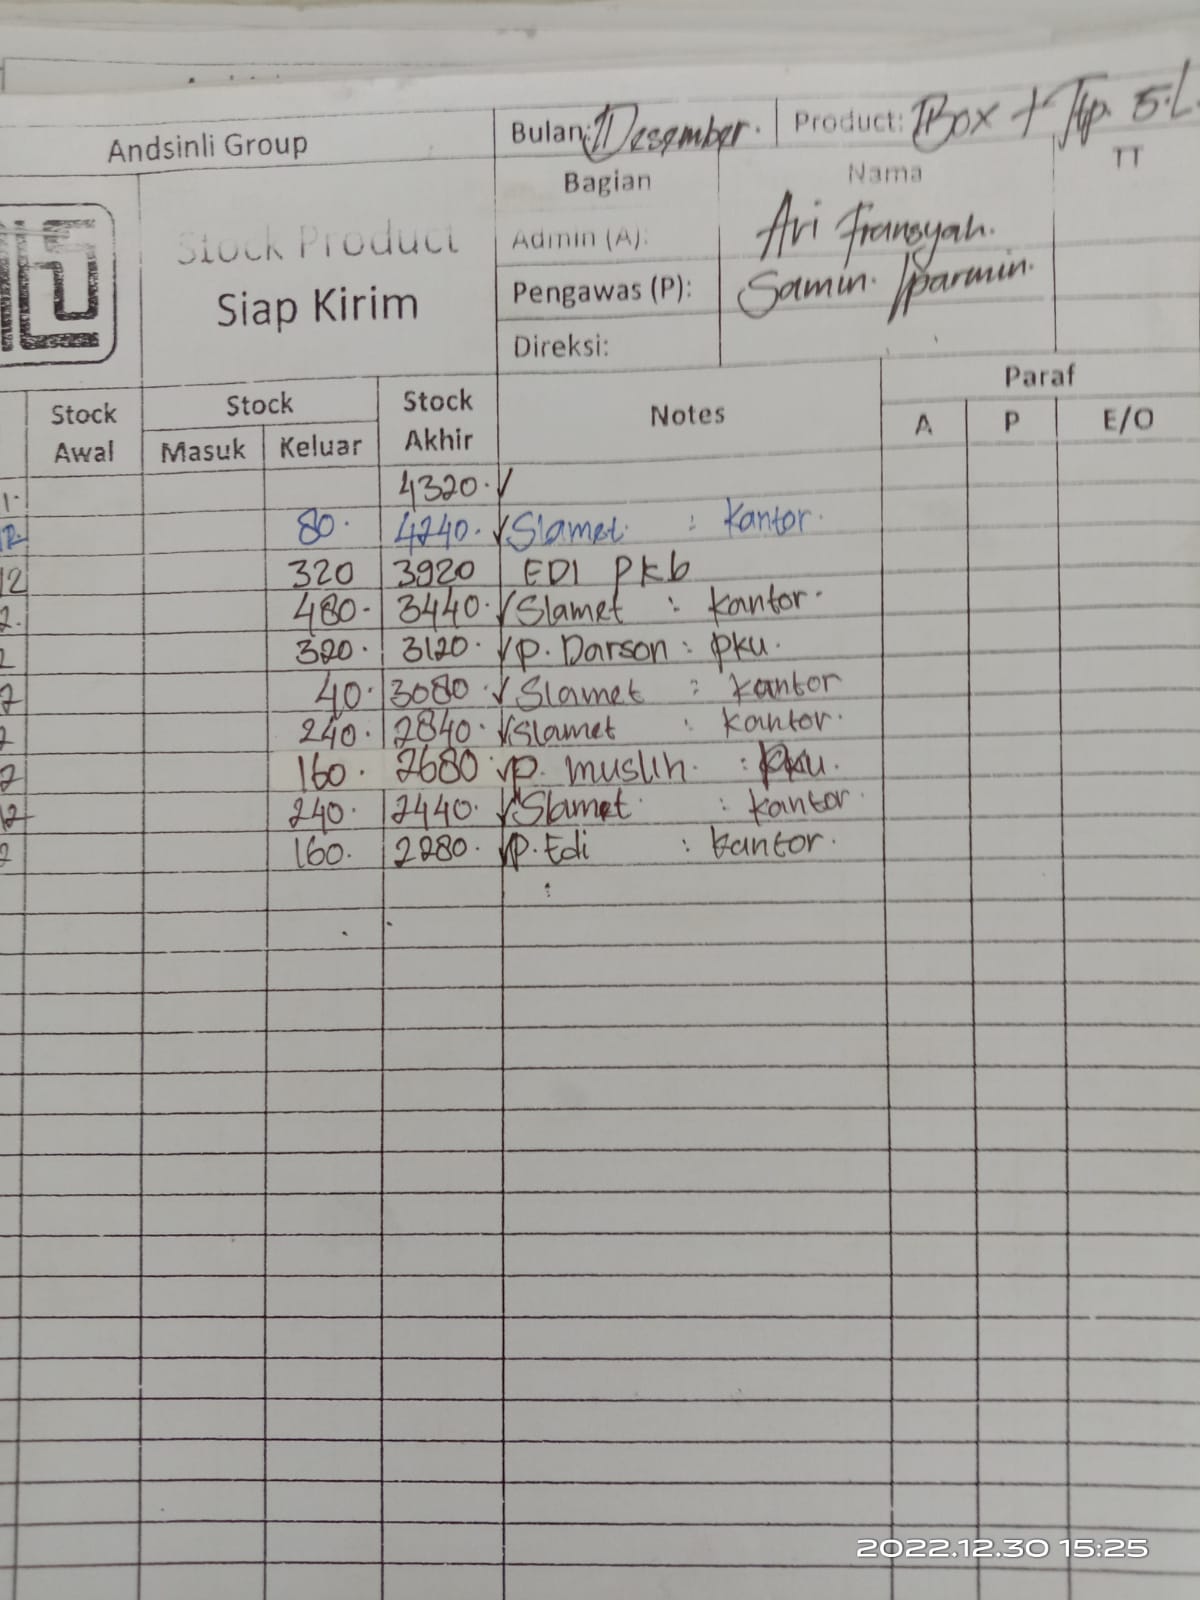 Andsinli Group
Bulan: Desember. Product: Box + Ttp. 5.L.
Bagian Nama TT
Stock Product
Siap Kirim
Admin (A): Ari Fransyah.
Pengawas (P): Samin. /parmin.
Direksi:
Stock Awal Stock Stock Akhir Notes Paraf
Masuk Keluar A P E/O
4320.✓
80. 4240.✓ Slamet : Kantor.
320 3920 EDI PKb
480. 3440.✓ Slamet : Kantor.
320. 3120.✓ P. Darson : pku.
40. 3080.✓ Slamet : Kantor
240. 2840.✓ Slamet : Kantor.
160. 2680.✓ P. muslih. : pku.
240. 2440.✓ Slamet. : Kantor.
160. 2280.✓ P. Edi : Kantor.
2022.12.30 15:25